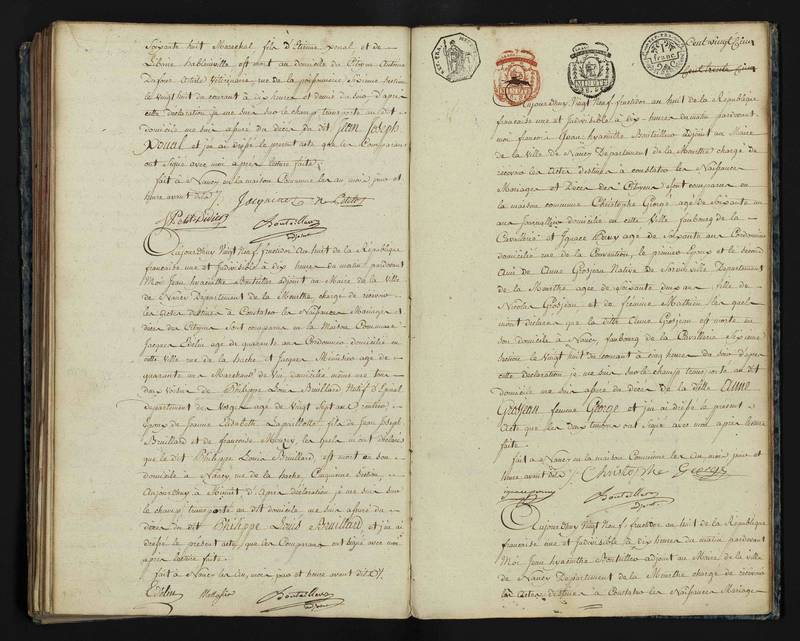 Soixante huit Marechal, fils d'Etienne Poual et de
Libaire hablainville est mort au domicile du Citoyen Antoine
Dafour Artiste Vétérinaire, rue de la poissonnerie Sixieme section
le vingt huit du courant à dix heures et demie du soir D'apres
cette déclaration je me suis sur le champ transporté au dit
domicile me suis assuré du décès du dit Jean Joseph
Poual et j'ai dressé le present acte que les Comparans
ont signé avec moi apres lecture faite
fait à Nancy en la maison Commune les an mois jour et
heure avant dits
Boutaillier
adjoint
Aujourdhuy Vingt Neuf fructidor An huit de la République
française une et Indivisible à dix heures du matin pardevant
Moi Jean hyacinthe Boutaillier adjoint au Maire de la Ville
de Nancy Departement de la Meurthe chargé de recevoir
les actes destinés à Constater les Naissances Mariages et
décès des Citoyens sont comparus en la Maison Commune
Jacques Edelin agé de quarante ans Cordonnier domicilié en
cette Ville rue de la hache et Jacques agé de
quarante ans Marchand de Vin, domicilié même rue tous
deux voisins de Philippe Louis Bouillard Natif d'Epinal
departement des Vosges agé de Vingt Sept ans
Epoux de Jeanne Elisabeth Lapaillotte fils de Jean Joseph
Bouillard et de françoise Mourey, les quels m'ont déclaré
que le dit Philippe Louis Bouillard, est mort en son
domicile à Nancy rue de la hache, Cinquieme Section,
Aujourdhuy à Minuit, d'Apres Déclaration, je me suis sur
le champ transporté au dit domicile me suis assuré du
décès du dit Philippe Louis Bouillard et j'ai
dressé le present acte, que les Comparans ont signé avec moi
apres lecture faite
fait à Nancy les an, mois jour et heure avant dits
Edelin
Boutaillier
adjoint
MINUTE
MINUTE
1 franc
Cent vingt
Cent trente
Aujourdhuy Vingt Neuf fructidor an huit de la République
française une et Indivisible à dix heures du matin pardevant
moi françois Jean hyacinthe Boutaillier adjoint au Maire
de la Ville de Nancy Departement de la Meurthe chargé de
recevoir les Actes destinés à constater les Naissances
Mariages et Décès des Citoyens sont comparus en
la maison commune Christophe George agé de soixante un
ans Journallier domicilié en cette Ville faubourg de la
Cavallerie et Ignace agé de soixante ans Cordonnier
domicilié rue de la Convention, le premier Epoux et le second
Ami de Anne Grosjean Native de Departement
de la Meurthe agée de soixante deux ans fille de
Nicolas Grosjean et de Mathieu les quels
m'ont déclaré que la ditte Anne Grosjean est morte en
son domicile à Nancy, faubourg de la Cavallerie Sixieme
Section le Vingt huit du courant à cinq heures du soir d'apres
cette déclaration je me suis sur le champ transporté au dit
domicile me suis assuré du décès de la ditte Anne
Grosjean femme George et j'ai dressé le present
Acte que les deux temoins ont signé avec moi apres lecture
faite
fait à Nancy en la maison Commune les an, mois jour et
heure avant dits Christophe George
Boutaillier
adjoint
Aujourdhuy Vingt Neuf fructidor an huit de la République
française une et Indivisible à dix heures du matin pardevant
Moi Jean hyacinthe Boutaillier adjoint au Maire de la ville
de Nancy Departement de la Meurthe chargé de recevoir
les actes destinés à Constater les Naissances Mariages